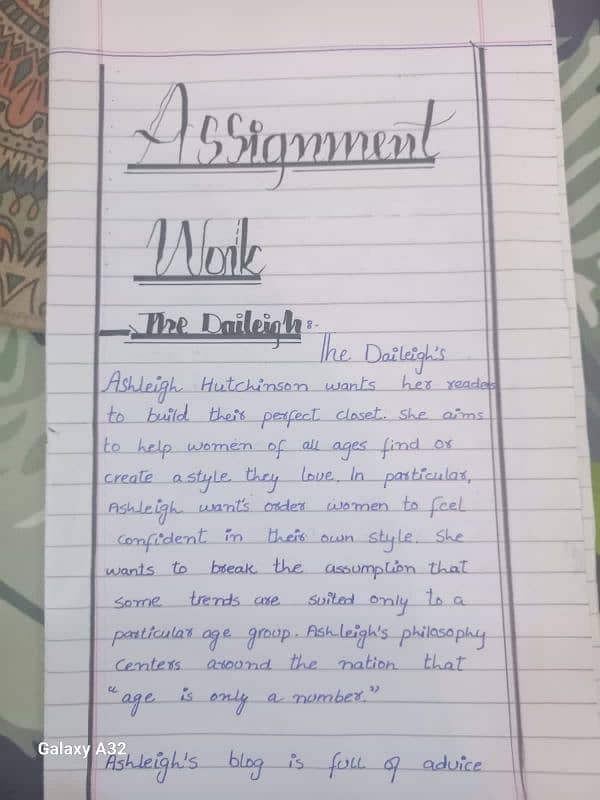 Assignment
Work
The Daileigh :-
The Daileigh's
Ashleigh Hutchinson wants her readers
to build their perfect closet. She aims
to help women of all ages find or
create a style they love. In particular,
Ashleigh want's order women to feel
confident in their own style. She
wants to break the assumption that
some trends are suited only to a
particular age group. Ashleigh's philosophy
centers around the nation that
"age is only a number."
Ashleigh's blog is full of advice
Galaxy A32